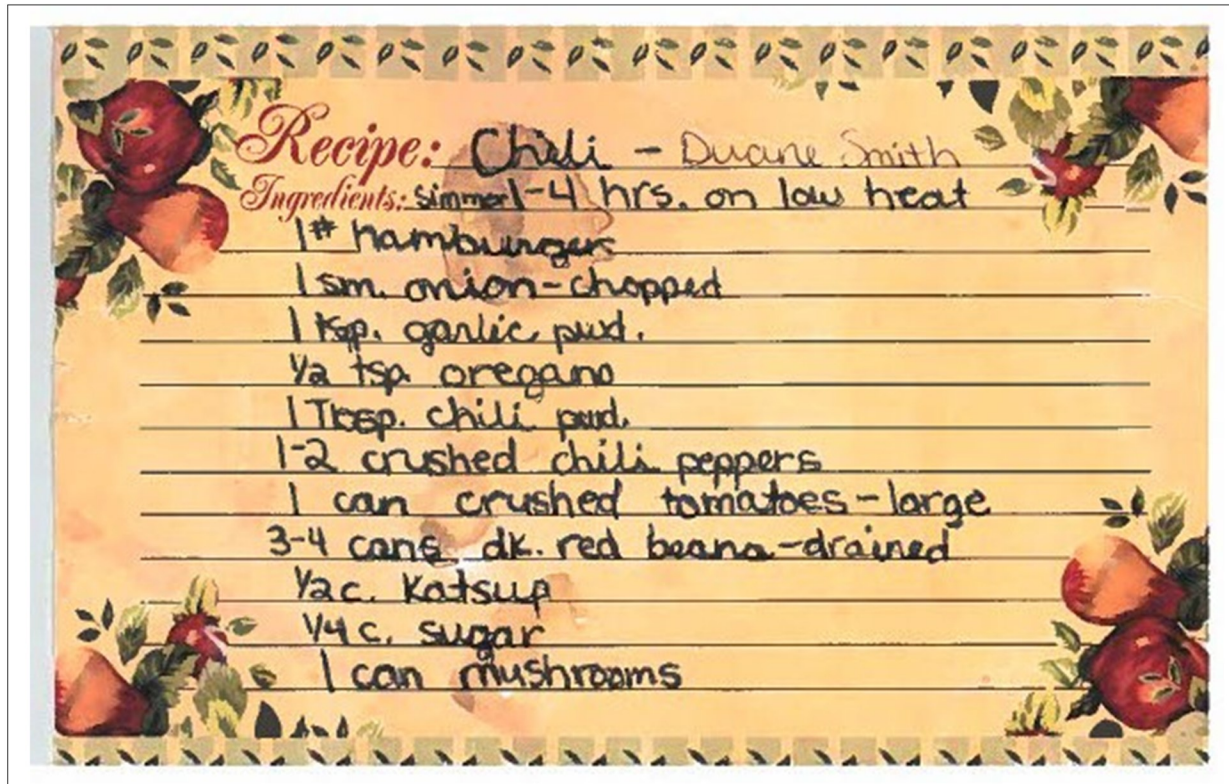 Recipe: Chili - Duane Smith
Ingredients: Simmer 1-4 hrs. on low heat
1# hamburgers
1 sm. onion-chopped
1 tsp. garlic pwd.
1/2 tsp. oregano
1 Tbsp. chili pwd.
1-2 crushed chili peppers
1 can crushed tomatoes-large
3-4 cans dk. red beans-drained
1/2 c. Katsup
1/4 c. sugar
1 can mushrooms